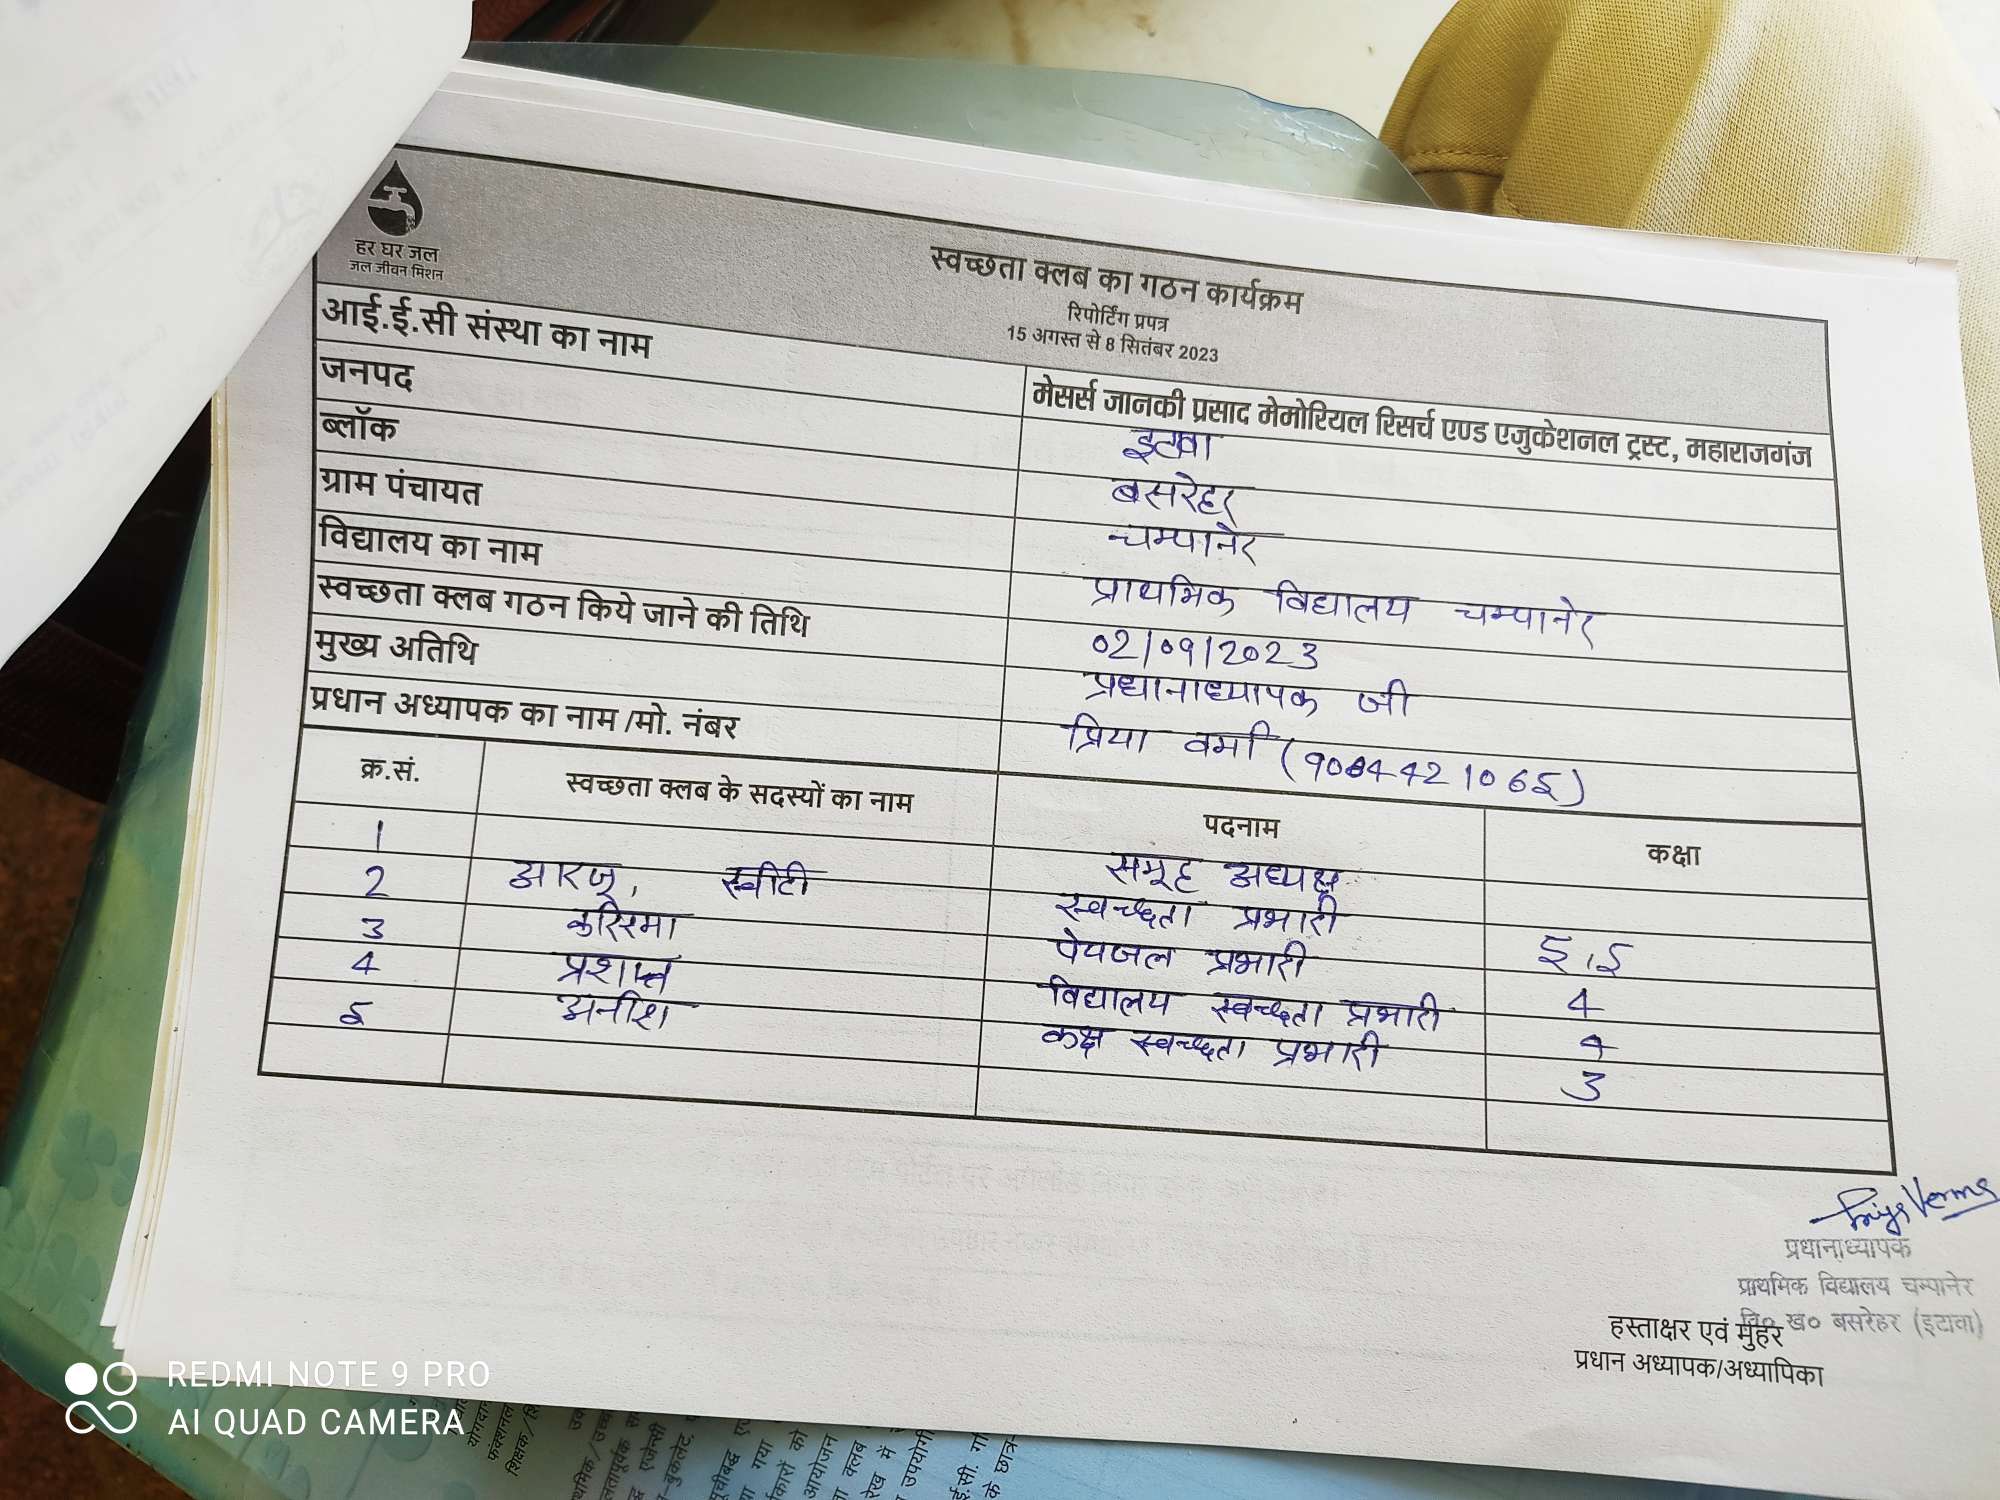 हर घर जल
जल जीवन मिशन
स्वच्छता क्लब का गठन कार्यक्रम
रिपोर्टिंग प्रपत्र
15 अगस्त से 8 सितंबर 2023
आई.ई.सी संस्था का नाम मेसर्स जानकी प्रसाद मेमोरियल रिसर्च एण्ड एजुकेशनल ट्रस्ट, महाराजगंज
जनपद इटावा
ब्लॉक बसरेहर
ग्राम पंचायत चम्पानेर
विद्यालय का नाम प्राथमिक विद्यालय चम्पानेर
स्वच्छता क्लब गठन किये जाने की तिथि 02/09/2023
मुख्य अतिथि प्रधानाध्यापक जी
प्रधान अध्यापक का नाम /मो. नंबर प्रिया वर्मा (9084421065)
क्र.सं. स्वच्छता क्लब के सदस्यों का नाम पदनाम कक्षा
1 आरजू, स्वीटी समूह अध्यक्ष 5,5
2 करिश्मा स्वच्छता प्रभारी 4
3 प्रशान्त पेयजल प्रभारी 4
4 अनीश विद्यालय स्वच्छता प्रभारी 3
5 कक्ष स्वच्छता प्रभारी
Priya Verma
प्रधानाध्यापक
प्राथमिक विद्यालय चम्पानेर
वि० ख० बसरेहर (इटावा)
हस्ताक्षर एवं मुहर
प्रधान अध्यापक/अध्यापिका
REDMI NOTE 9 PRO
AI QUAD CAMERA